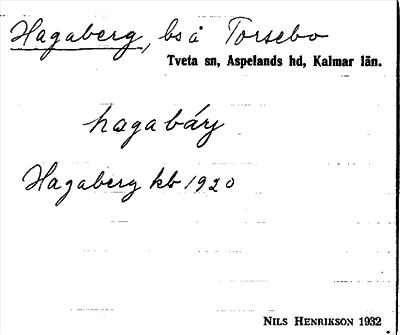 Hagaberg, bs å Torsebo
Tveta sn, Aspelands hd, Kalmar län.
hagabárj
Hagaberg kb 1920
NILS HENRIKSON 1932